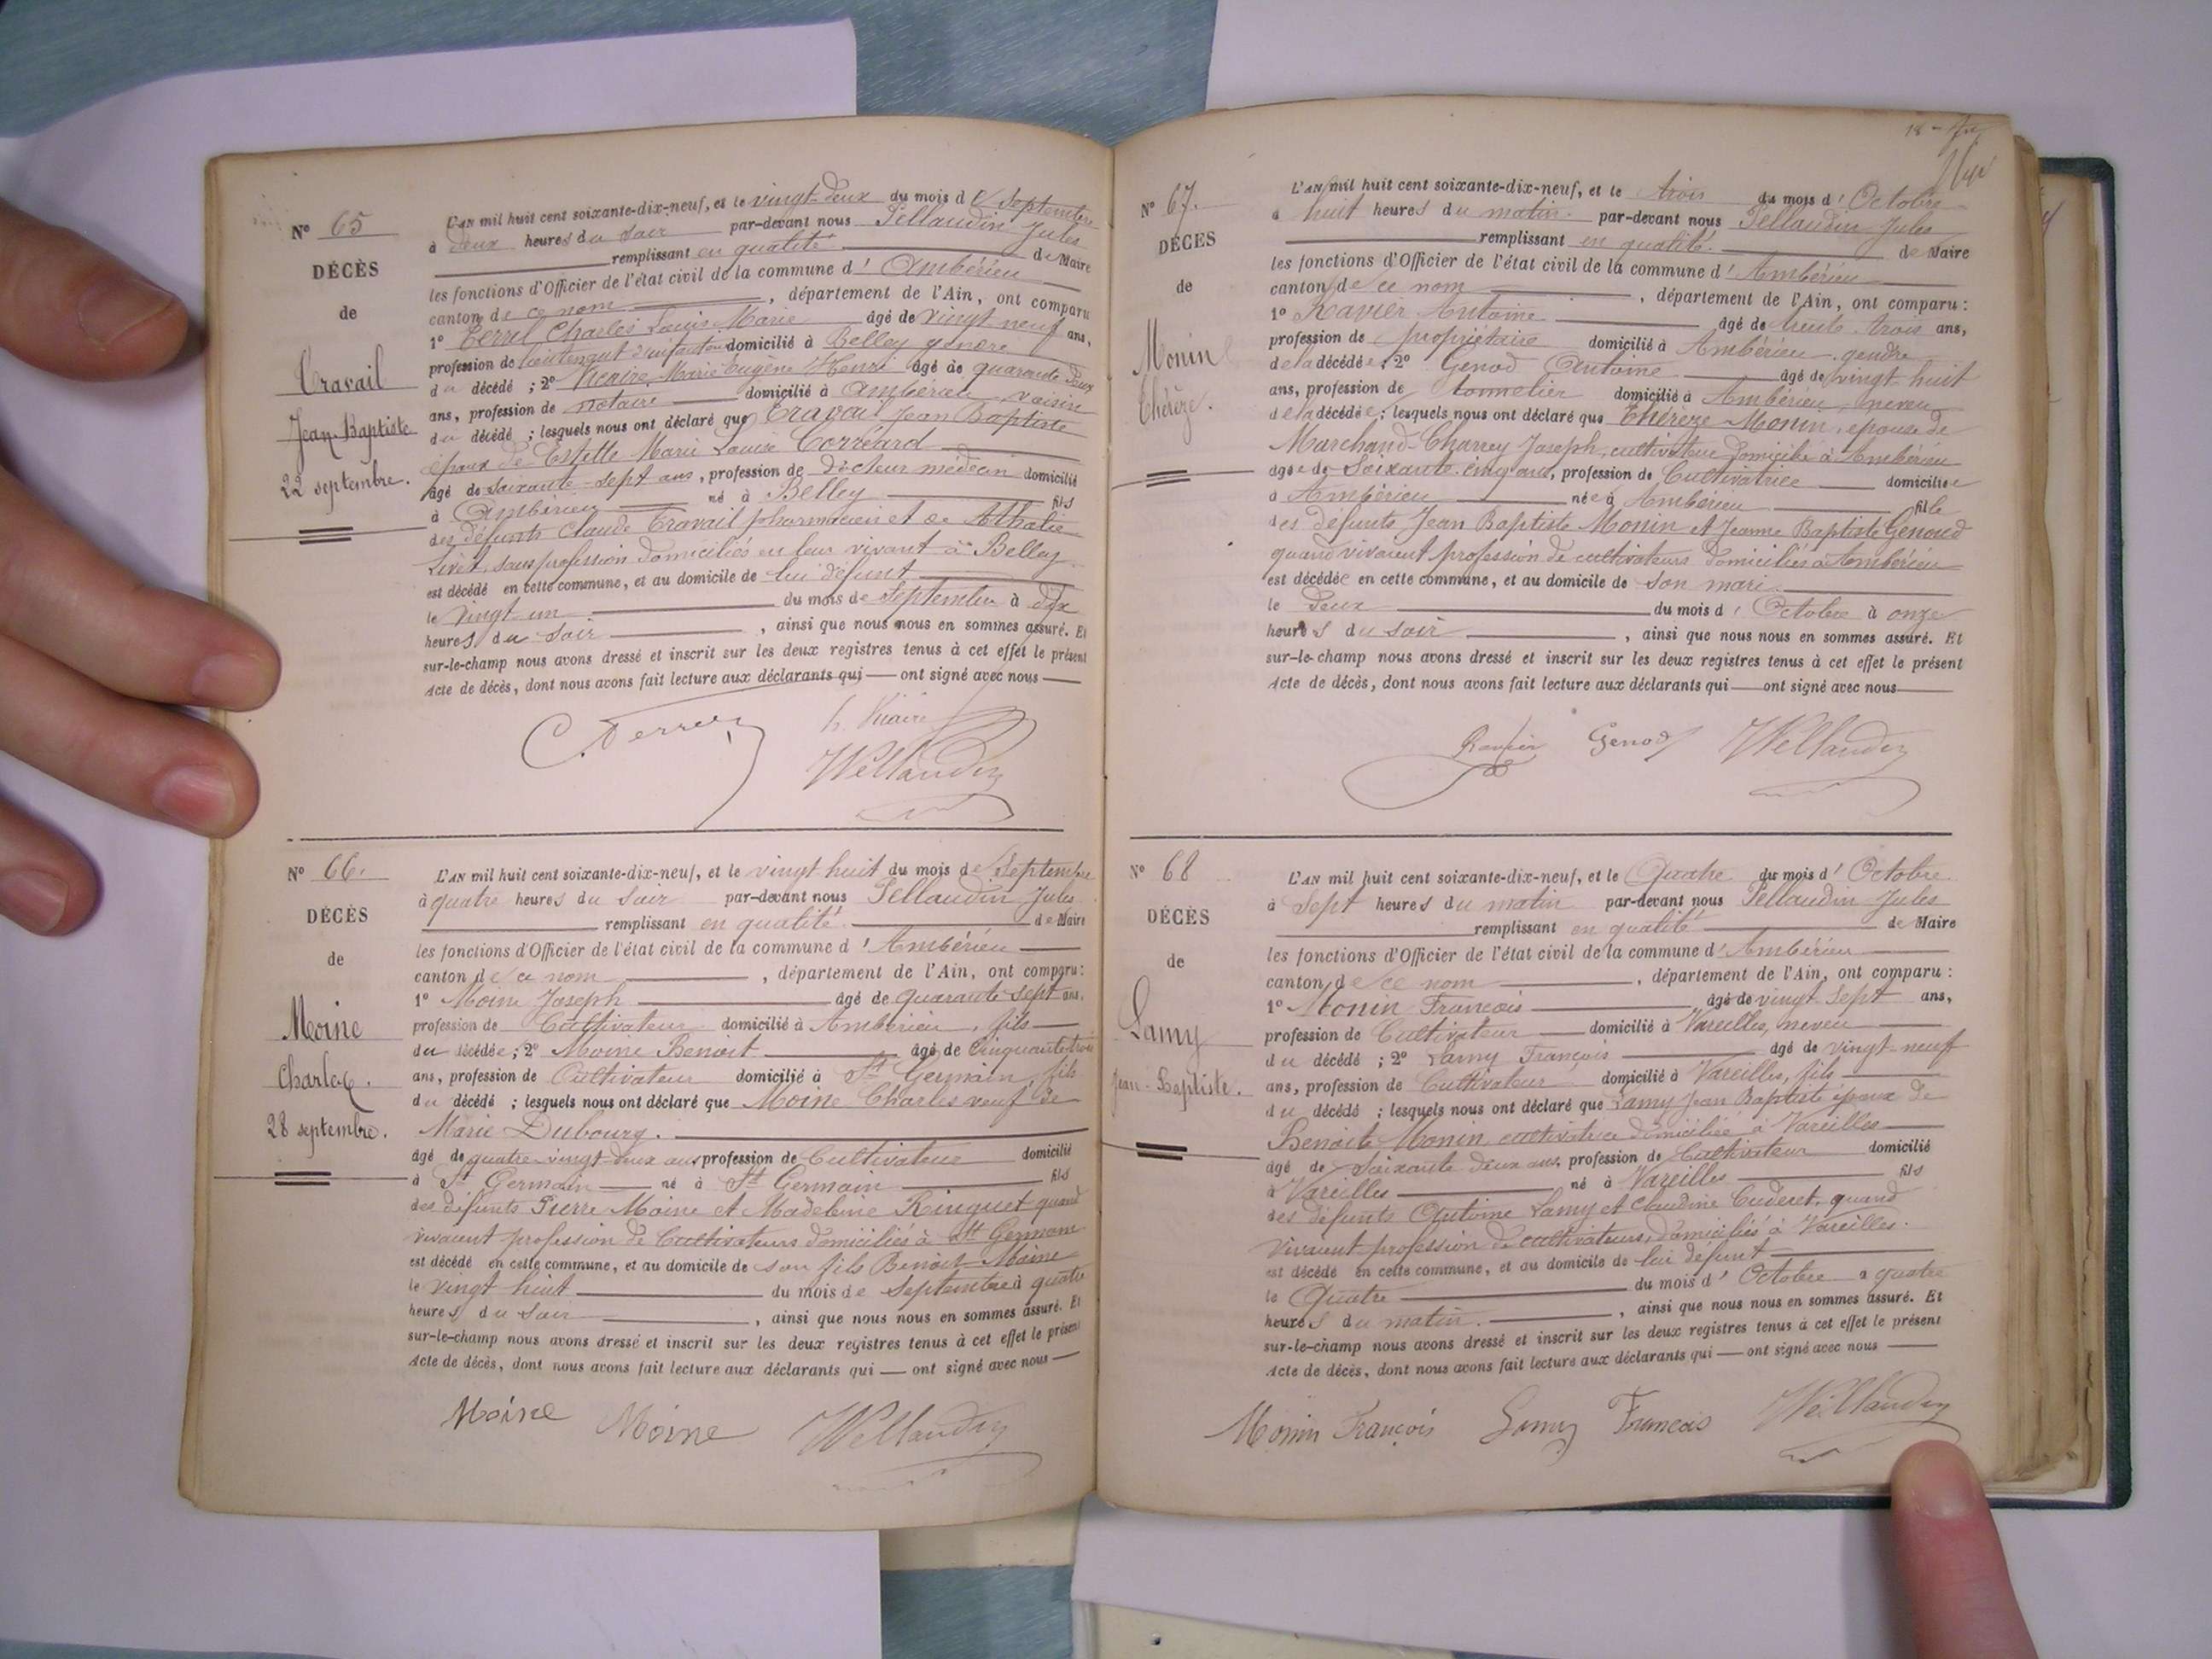 N° 65
DÉCÈS
de
Travail
Jean-Baptiste
22 septembre.
L'AN mil huit cent soixante-dix-neuf, et le vingt-deux du mois de Septembre
à deux heures du soir par-devant nous Pellaudin Jules
remplissant en qualité de Maire
les fonctions d'Officier de l'état civil de la commune d'Ambérieu
canton de ce nom, département de l'Ain, ont comparu
1° Terrel Charles Louis Marie âgé de vingt neuf ans,
profession de lieutenant d'infanterie domicilié à Belley gendre
du décédé ; 2° Vicaire Marie Eugène Henri âgé de quarante deux
ans, profession de notaire domicilié à Ambérieu voisin
du décédé ; lesquels nous ont déclaré que Travail Jean Baptiste
époux de Estelle Marie Louise Corréard
âgé de soixante-sept ans, profession de docteur médecin domicilié
à Ambérieu né à Belley fils
des défunts Claude Travail pharmacien et de Athalie
Livet, sans profession domiciliés en leur vivant à Belley
est décédé en cette commune, et au domicile de lui défunt
le vingt un du mois de Septembre à dix
heures du soir, ainsi que nous nous en sommes assuré. Et
sur-le-champ nous avons dressé et inscrit sur les deux registres tenus à cet effet le présent
Acte de décès, dont nous avons fait lecture aux déclarants qui — ont signé avec nous —
C. Terrel h. Vicaire
Pellaudin
N° 66.
DÉCÈS
de
Moine
Charles.
28 septembre.
L'AN mil huit cent soixante-dix-neuf, et le vingt huit du mois de Septembre
à quatre heures du soir par-devant nous Pellaudin Jules
remplissant en qualité de Maire
les fonctions d'Officier de l'état civil de la commune d'Ambérieu
canton de ce nom, département de l'Ain, ont comparu:
1° Moine Joseph âgé de quarante sept ans,
profession de Cultivateur domicilié à Ambérieu, fils
du décédée ; 2° Moine Benoit âgé de Cinquante trois
ans, profession de Cultivateur domicilié à St Germain, fils
du décédé ; lesquels nous ont déclaré que Moine Charles veuf de
Marie Dubourg.
âgé de quatre-vingt-deux ans, profession de Cultivateur domicilié
à St Germain né à St Germain fils
des défunts Pierre Moine et Madeleine Ringuet quand
vivaient profession de Cultivateurs domiciliés à St Germain
est décédé en cette commune, et au domicile de son fils Benoit Moine
le vingt huit du mois de Septembre à quatre
heures du soir, ainsi que nous nous en sommes assuré. Et
sur-le-champ nous avons dressé et inscrit sur les deux registres tenus à cet effet le présent
Acte de décès, dont nous avons fait lecture aux déclarants qui — ont signé avec nous —
Moine Moine Pellaudin
N° 67.
DÉCÈS
de
Monin
Thérèze.
L'AN mil huit cent soixante-dix-neuf, et le trois du mois d'Octobre
à huit heures du matin par-devant nous Pellaudin Jules
remplissant en qualité de Maire
les fonctions d'Officier de l'état civil de la commune d'Ambérieu
canton de ce nom, département de l'Ain, ont comparu :
1° Ravier Antoine âgé de trente-trois ans,
profession de propriétaire domicilié à Ambérieu, gendre
de la décédée ; 2° Genod Antoine âgé de vingt huit
ans, profession de tonnelier domicilié à Ambérieu, neveu
de la décédée ; lesquels nous ont déclaré que Thérèze Monin, épouse de
Marchand-Charrey Joseph, cultivateur domicilié à Ambérieu
âgée de Soixante-cinq ans, profession de Cultivatrice domiciliée
à Ambérieu née à Ambérieu fille
des défunts Jean Baptiste Monin et Jeanne Baptiste Genoud
quand vivaient profession de cultivateurs domiciliés à Ambérieu
est décédée en cette commune, et au domicile de son mari
le Deux du mois d'Octobre à onze
heures du soir, ainsi que nous nous en sommes assuré. Et
sur-le-champ nous avons dressé et inscrit sur les deux registres tenus à cet effet le présent
Acte de décès, dont nous avons fait lecture aux déclarants qui — ont signé avec nous —
Ravier Genod Pellaudin
N° 68
DÉCÈS
de
Lamy
Jean-Baptiste.
L'AN mil huit cent soixante-dix-neuf, et le Quatre du mois d'Octobre
à Sept heures du matin par-devant nous Pellaudin Jules
remplissant en qualité de Maire
les fonctions d'Officier de l'état civil de la commune d'Ambérieu
canton de ce nom, département de l'Ain, ont comparu :
1° Monin François âgé de vingt Sept ans,
profession de Cultivateur domicilié à Vareilles, neveu
du décédé ; 2° Lamy François âgé de vingt-neuf
ans, profession de Cultivateur domicilié à Vareilles, fils
du décédé ; lesquels nous ont déclaré que Lamy Jean Baptiste époux de
Benoite Monin, cultivatrice domiciliée à Vareilles
âgé de Soixante deux ans, profession de Cultivateur domicilié
à Vareilles né à Vareilles fils
des défunts Antoine Lamy et Claudine Cuderet, quand
vivaient profession de cultivateurs, domiciliés à Vareilles.
est décédé en cette commune, et au domicile de lui défunt
le Quatre du mois d'Octobre à quatre
heures du matin, ainsi que nous nous en sommes assuré. Et
sur-le-champ nous avons dressé et inscrit sur les deux registres tenus à cet effet le présent
Acte de décès, dont nous avons fait lecture aux déclarants qui — ont signé avec nous —
Monin François Lamy Francois Pellaudin